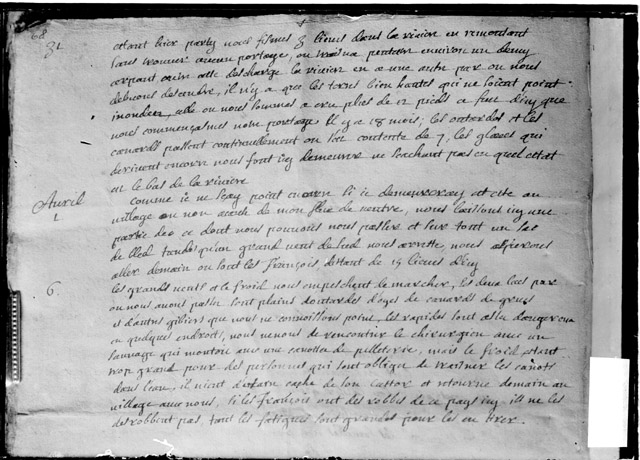 68
31 estant hier party nous fismes 3 lieues dans la riviere en remontant
sans trouver aucun portage, on traisna pendant environ un demy
arpant outre cette descharge la riviere en a une autre par ou nous
debuons descendre, il n'y a que les terres bien hautes qui ne soient point
inondees, celle ou nous sommes a cru plus de 12 pieds ce fut d'icy que
nous commençasmes nostre portage Il y a 18 mois; les outardes et les
canards passent continuellement on s'est contenté de 7, les glaces qui
derivent encore nous font icy demeurer ne sachant pas en quel estat
est le bas de la riviere
Avril
1 comme je ne sçay point encore si je demeureray cet esté au
village ou non acause de mon flux de ventre, nous laissons icy une
partie de ce dont nous pouvons nous passer et sur tout un sac
de bled tandis qu'un grand vent de sud nous arreste, nous esperons
aller demain ou sont les François distant de 15 lieues d'icy
6. les grands vents et le froid nous empeschent de marcher, les deux lacs par
ou nous avons passé sont plains d'outardes d'oyes de canards de grues
et d'autres gibiers que nous ne connoissons point, les rapides sont assez dangereux
en quelques endroits, nous venons de rencontrer le chirurgien avec un
sauvage qui montoit avec une canottée de pelleterie, mais le froid estant
trop grand pour des personnes qui sont obligez de traisner les canots
dans l'eau, il vient de faire cache de son castor et retourne demain au
village avec nous, si les François ont des robbes de ce pays icy ils ne les
desrobbent pas, tant les fatigues sont grandes pour les en tirer.